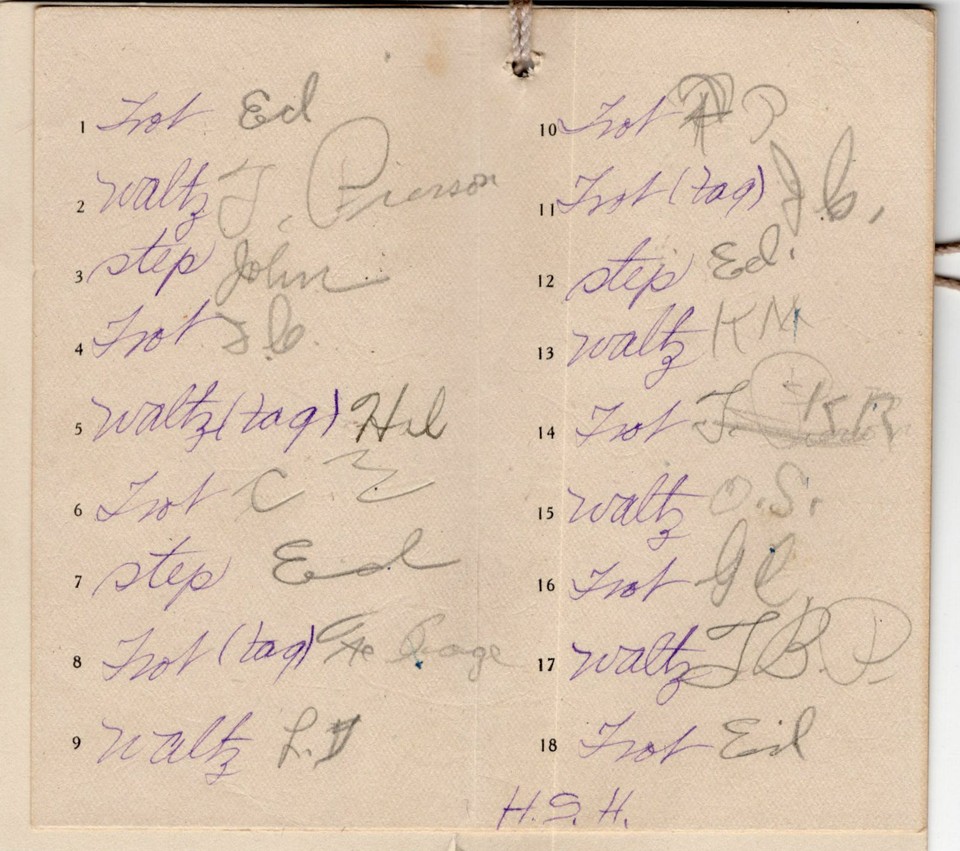 1 Trot Ed
2 Waltz J. Pierson
3 step John
4 Trot
5 Waltz (tag) Hal
6 Trot C
7 step Ed
8 Trot (tag)
9 Waltz L.
10 Trot P
11 Trot (tag) J
12 step Ed.
13 Waltz KM
14 Trot J. KR
15 Waltz O.S.
16 Trot
17 Waltz J.B.P.
18 Trot Ed
H.S.H.